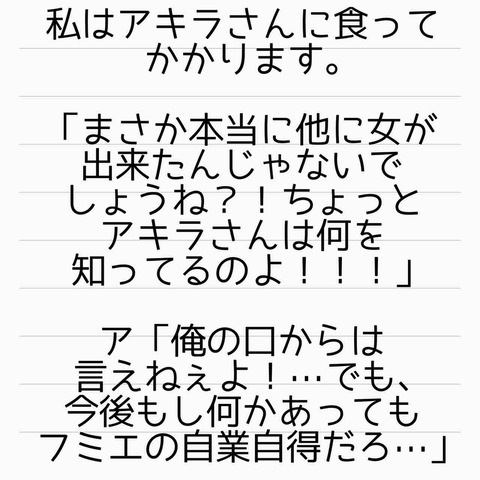 私はアキラさんに食って
かかります。
「まさか本当に他に女が
出来たんじゃないで
しょうね？！ちょっと
アキラさんは何を
知ってるのよ！！！」
ア「俺の口からは
言えねぇよ！…でも、
今後もし何かあっても
フミエの自業自得だろ…」